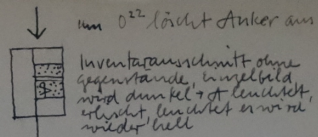 um 0²² löscht Anker aus
Inventarausschnitt ohne
gegenstände, einzelbild
wird dunkel + A leuchtet,
erlischt, leuchtet es wird
wieder hell